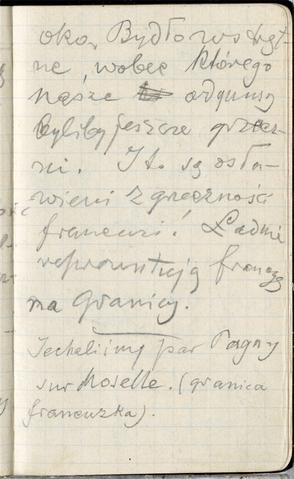 oko, Bydło wstręt
ne, wobec którego
nasze ordynusy
byliby jeszcze grzecz
ni. I to są osła
wieni z grzeczności
francuzi! Ładnie
reprezentują francyę
na granicy.
Jechaliśmy par Pagny
sur Moselle. (granica
francuzka).